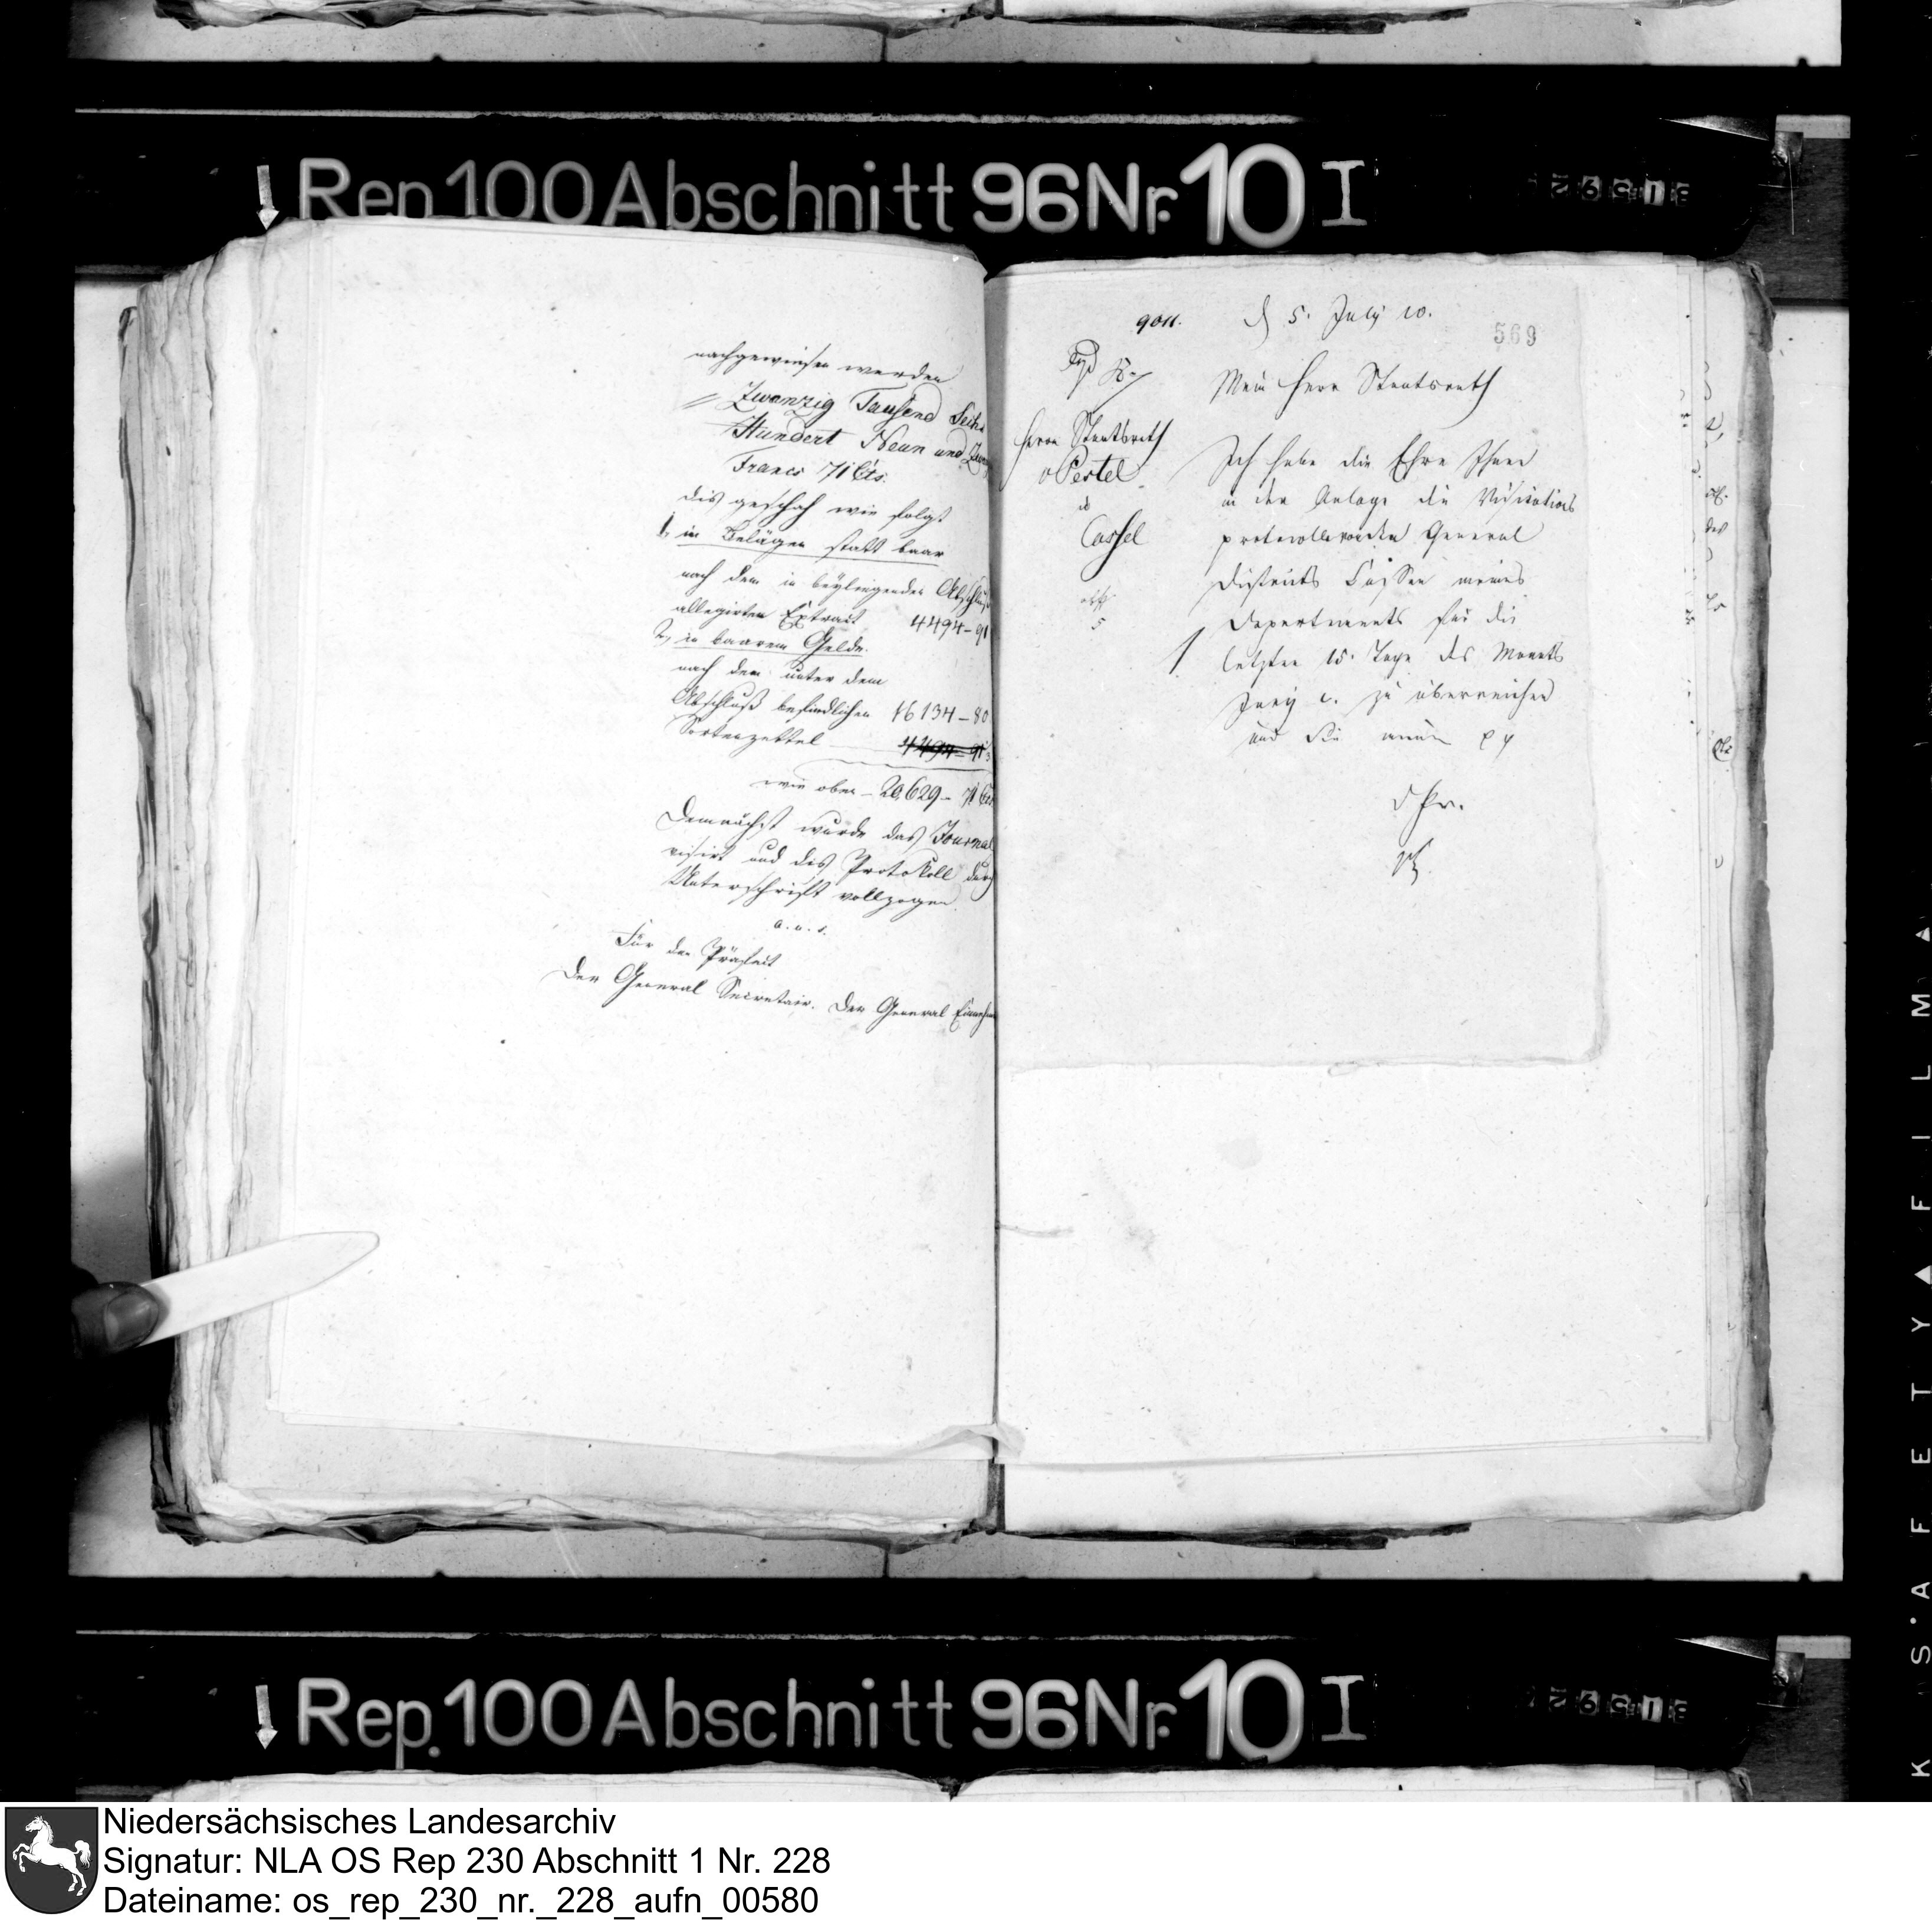 Rep 100 Abschnitt 96 Nr. 10 I
nachgewiesen werden
Zwanzig Tausend Sechs
Hundert Neun und Zwanzig
Francs 71 Cts.
dies geschah wie folgt
1, in Belägen statt baar
nach dem in beyliegenden Abschluß
allegirten Extract 4494-91
2, in baarem Gelde.
nach dem unter dem
Abschluß befindlichen 16134-80
Sortenzettel 4494-91
wie oben - 20,629 - 71 Cts
Demnächst wurde das Journal
visirt und das Protokoll durch
Unterschrift vollzogen.
a. u. s.
Für den Präfect
Der General Secretair. Der General Einnehmer
9011. d 5. July 10.
569
Mein Herr Staatsrath
Herrn Staatsrath
v Pestel
Cassel
Ich habe die Ehre Ihnen
in der Anlage die Visitations
protocolle von den General
Districts Cassen meines
Departements für die
1 letzten 15. Tage des Monats
Juny c. zu überreichen
und Sie
d Pr.
Rep. 100 Abschnitt 96 Nr. 10 I
K SAFETY FILM
Niedersächsisches Landesarchiv
Signatur: NLA OS Rep 230 Abschnitt 1 Nr. 228
Dateiname: os_rep_230_nr._228_aufn_00580